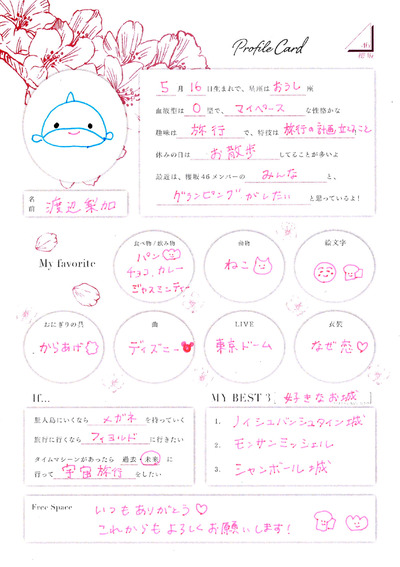 Profile Card
46
櫻坂
5月16日生まれで、星座はおうし座
血液型はO型で、マイペースな性格かな
趣味は旅行で、特技は旅行の計画立てること
休みの日はお散歩してることが多いよ
最近は、櫻坂46メンバーのみんなと、
グランピングがしたいと思っているよ!
名前 渡辺梨加
My favorite
食べ物/飲み物
パン
チョコ、カレー
ジャスミンティー
動物
ねこ
絵文字
おにぎりの具
からあげ
曲
ディズニー
LIVE
東京ドーム
衣装
なぜ恋♡
If...
無人島にいくならメガネを持っていく
旅行に行くならフィヨルドに行きたい
タイムマシーンがあったら 過去・未来に
行って宇宙旅行をしたい
MY BEST 3「好きなお城」
1. ノイシュバンシュタイン城
2. モンサンミッシェル
3. シャンボール城
Free Space
いつもありがとう♡
これからもよろしくお願いします!